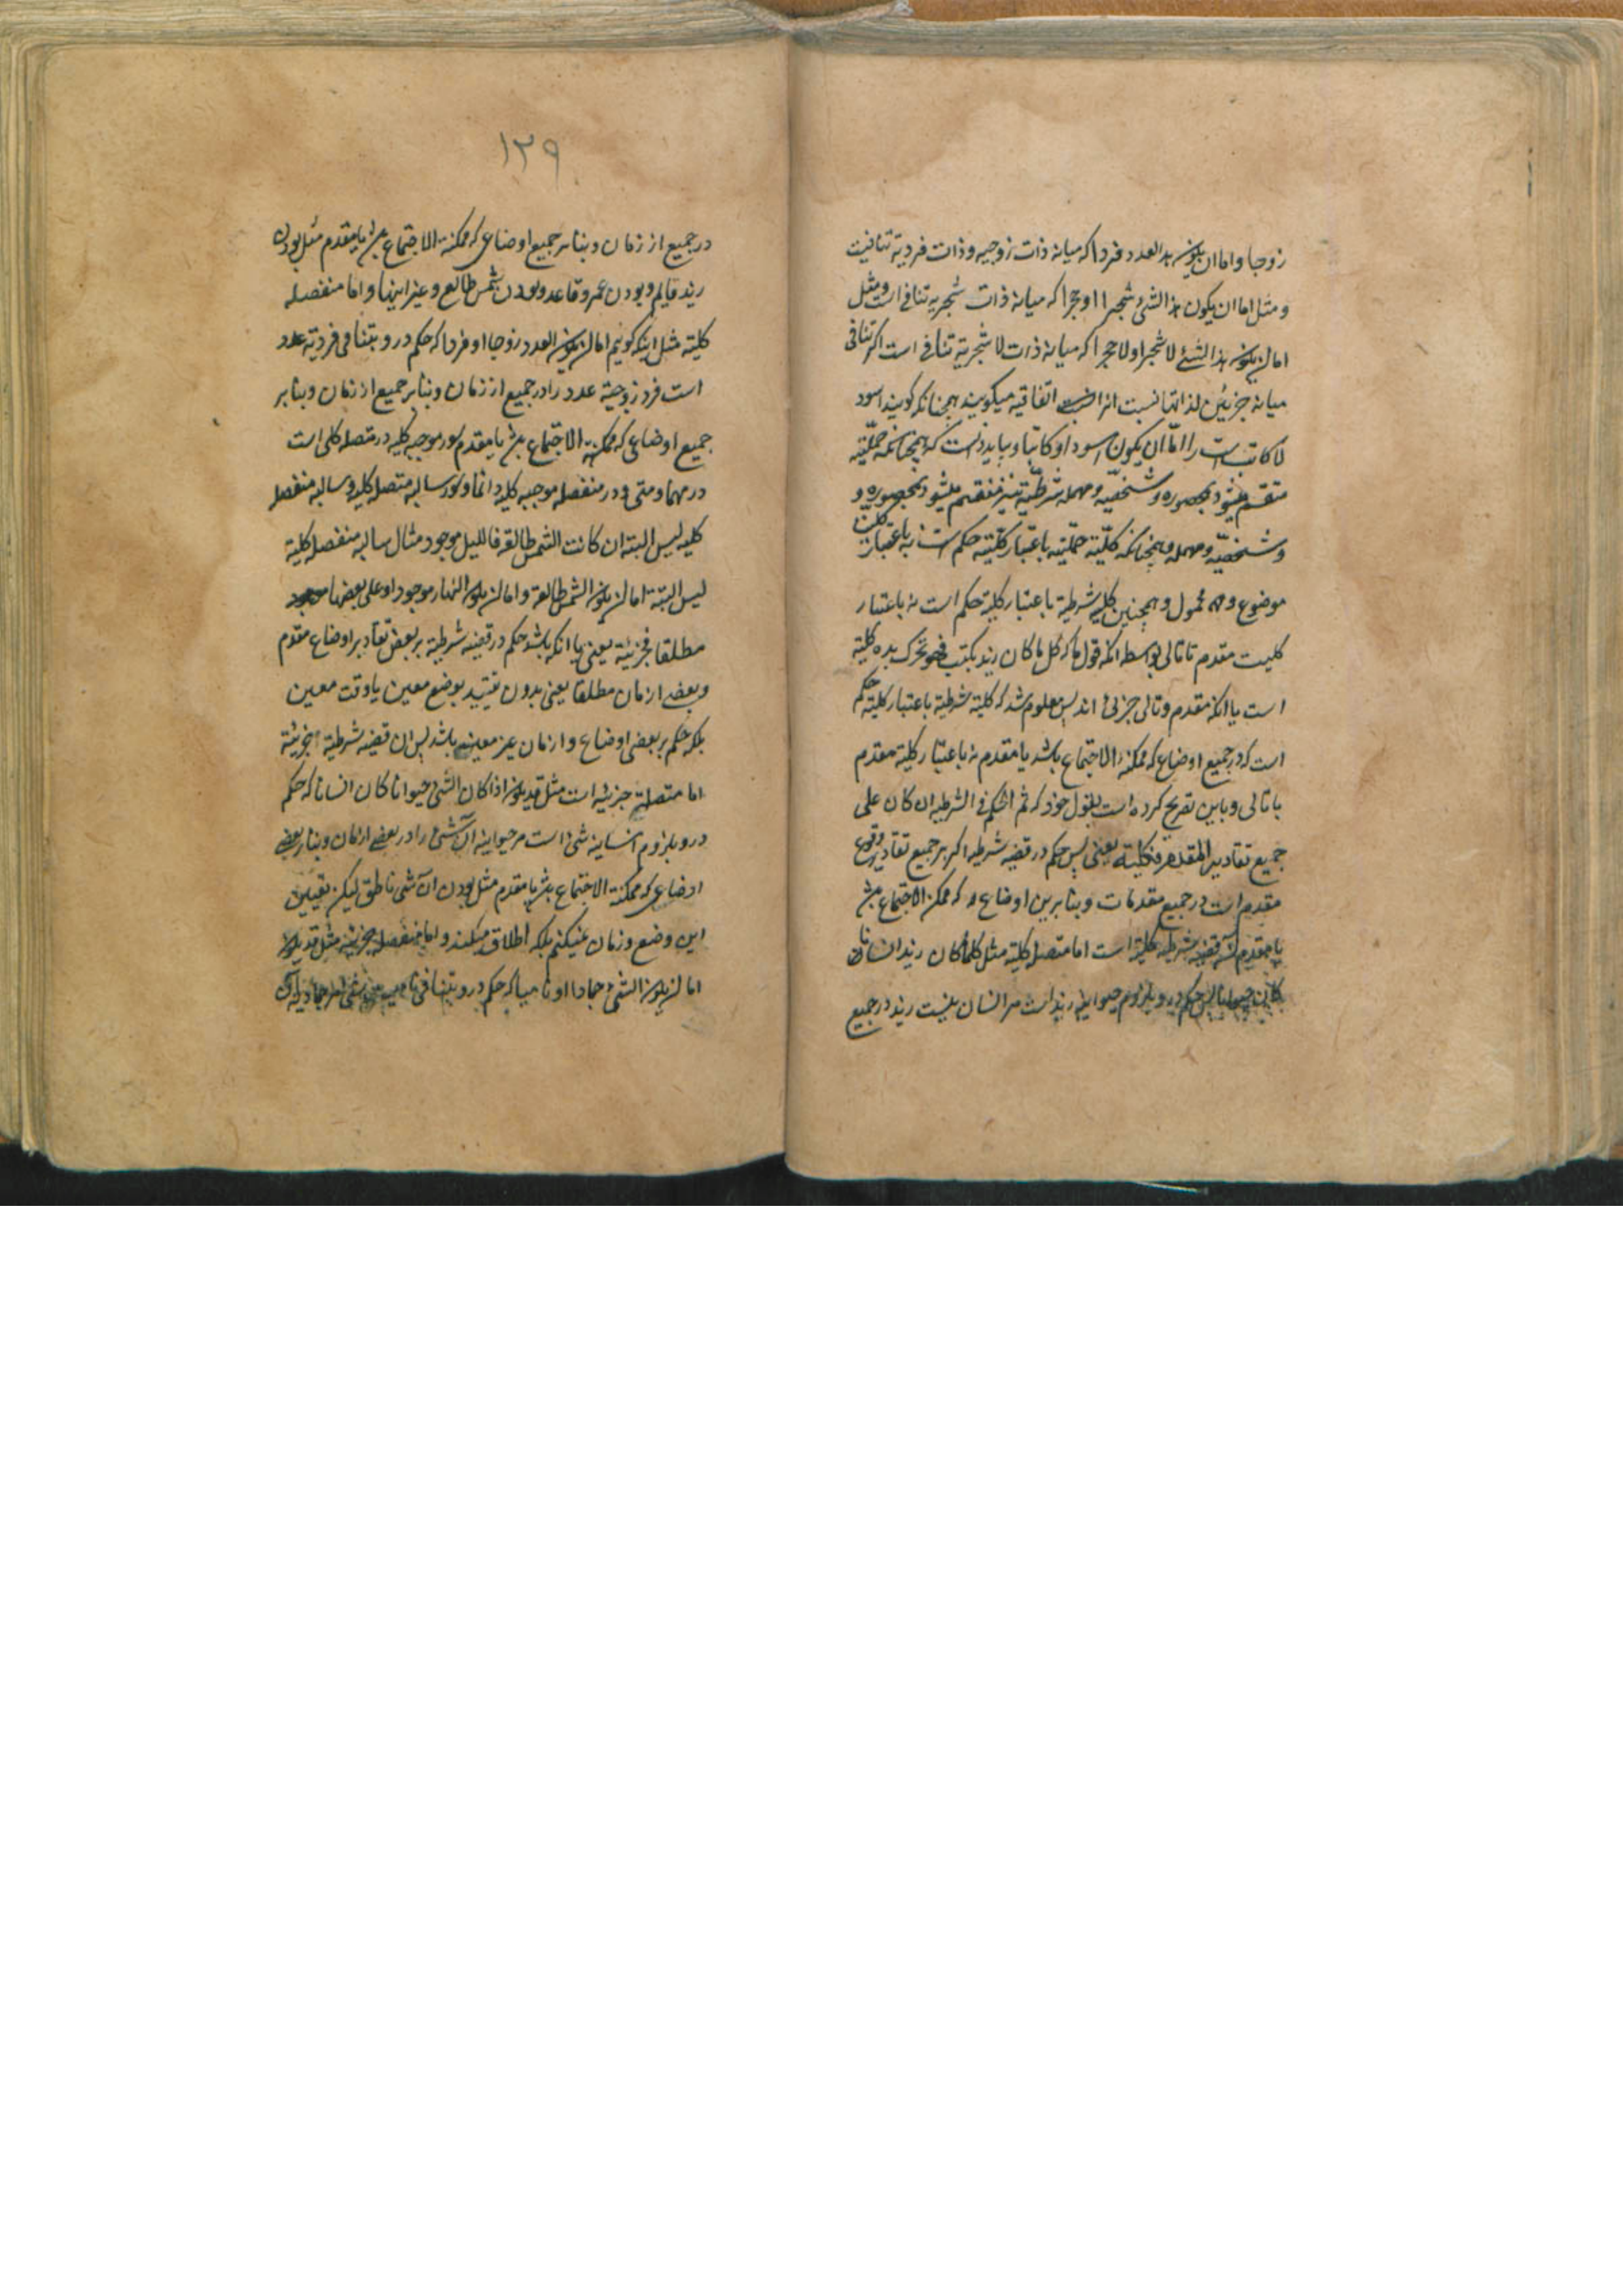 زوجا و اما ان یکون هذا العدد فردا که میانه ذات زوجیه و ذات فردیة تنافیست
و مثل اما ان یکون هذا الشئ شجرا او حجرا که میانه ذات شجریه تنافی است و مثل
اما ان یکون هذا الشئ لا شجرا و لا حجرا که میانه ذات لا شجریة تنافی است اکر تنافی
میانه جزئین لذاتهما نیست انرا اتفاقیه میکویند همچنانکه کویند اسود
لا کاتب است را اما ان یکون اسود او کاتبا و بباید دانست که همچنانکه حملیه
منقسم میشود بمحصوره و شخصیه و مهمله شرطیه نیز منقسم میشود بمحصوره و
و شخصیه و مهمله و همچنانکه کلیة حملیه باعتبار کلیة حکم است نه باعتبار کلیت
موضوع و محمول و همچنین کلیة شرطیة باعتبار کلیة حکم است نه باعتبار
کلیت مقدم تا تالی بواسطه انکه قول ما که کل ما کان زید یکتب فهو تحرک یده کلیة
است با انکه مقدم و تالی جزئی اند پس معلوم شد که کلیة شرطیة باعتبار کلیة حکم
است که در جمیع اوضاع که ممکنة الاجتماع باشد با مقدم نه باعتبار کلیة مقدم
یا تالی و باین تصریح کرده است بقول خود که ثم الحکم فی الشرطیه ان کان علی
جمیع تقادیر المقدم فکلیة یعنی پس حکم در قضیه شرطیه اکر بر جمیع تقادیر وقوع
مقدم است در جمیع مقدمات و بنابرین اوضاع که ممکن الاجتماع باشد
با مقدم آن قضیه شرطیه کلیة است اما متصله کلیة مثل کلما کان زید انسانا
کان حیوانا پس حکم درو بلزوم حیوانیة زید است مر انسان نیست زید در جمیع
۱۳۹
در جمیع از زمان و بنابر جمیع اوضاعی که ممکنة الاجتماع باشد با مقدم مثل بودن
زید قایم و بودن عمرو قاعد و بودن شمس طالع و غیر اینها و اما منفصله
کلیة مثل اینکه کوئیم اما ان یکون العدد زوجا او فردا که حکم درو بتنافی فردیة عدد
است فرد زوجیة عدد را در جمیع از زمان و بنابر جمیع از زمان و بنابر
جمیع اوضاعی که ممکنة الاجتماع باشد با مقدم و سور موجبه کلیه در متصله کلی است
در مهما و متی و در منفصله موجبه کلیه دائما و سور سالبه متصله کلیه و سالبه منفصله
کلیه لیس البتة ان کانت الشمس طالعة فاللیل موجود مثال سالبه منفصله کلیة
لیس البتة اما ان یکون الشمس طالعة و اما ان یکون النهار موجود او علی بعضها
مطلقا فجزئیة یعنی یا انکه باشد حکم در قضیه شرطیة بر بعض تقادیر اوضاع مقدم
و بعض ازمان مطلقا یعنی بدون تقیید بوضع معین یا وقت معین
بلکه حکم بر بعض اوضاع و ازمان غیر معین باشد پس ان قضیه شرطیة جزئیة
اما متصله جزئیه است مثل قد یکون اذا کان الشئ حیوانا کان انسانا که حکم
درو بلزوم انسانیة شئ است مر حیوانیه آن شئ را در بعض ازمان و بنابر بعضی
اوضاعی که ممکنة الاجتماع باشد با مقدم مثل بودن آن شئ ناطق لیکن تعیین
این وضع و زمان نمیکنیم بلکه اطلاق میکنند و اما منفصله جزئیه مثل قد یکون
اما ان یکون الشئ جمادا او نامیا که حکم درو بتنافی